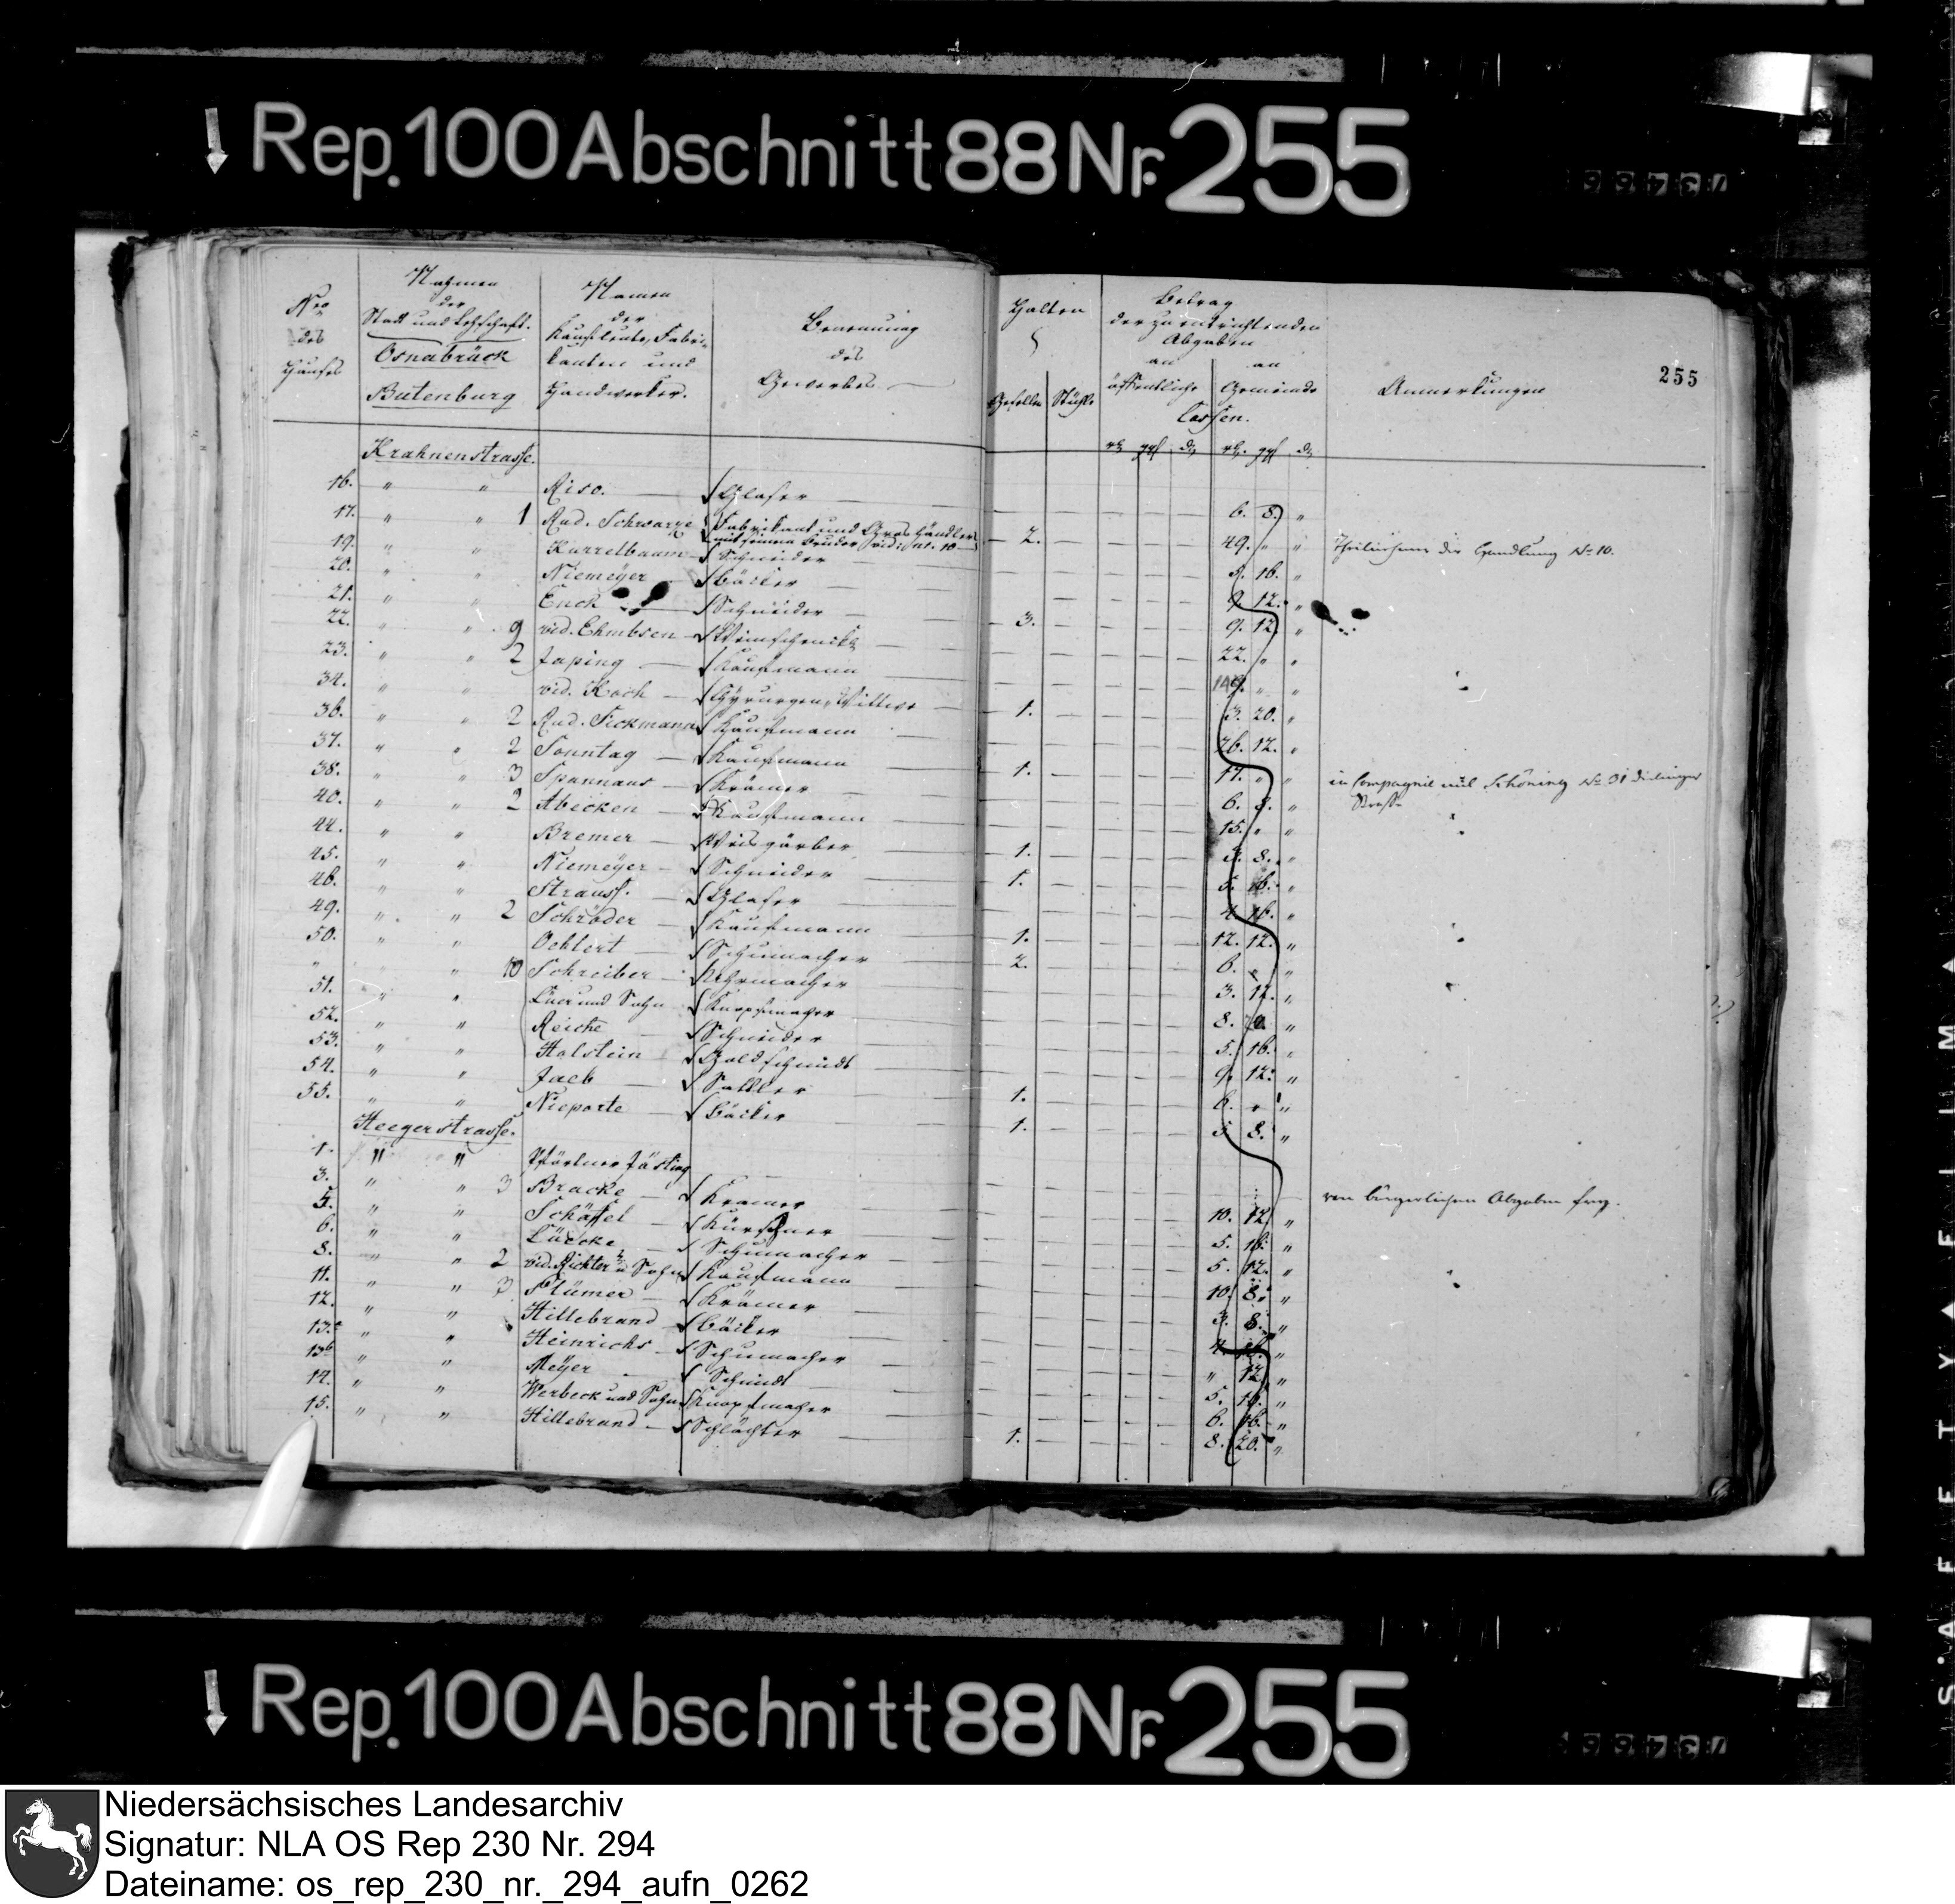 Rep. 100 Abschnitt 88 Nr. 255
255
Nro des Hauses
Nahmen der Stadt und Ortschaft.
Osnabrück
Butenburg
Namen der Kaufleute, Fabrikanten und Handwerker.
Benennung des Gewerbes
Halten
Gesellen Stühle
Betrag der zu entrichtenden Abgaben
an öffentliche
an Gemeinde
Cassen.
Anmerkungen
Krahnenstrasse.
16. " " Riso. Glaser 6. 8. "
17. " " 1 Rud. Schwarze Fabrikant und Gros Händler mit seinem Bruder vid: nr. 10 2. 49. " " Theilnehmer der Handlung No 10.
19. " " Kurrelbaum Schneider 16. "
20. " " Niemeyer Bäcker 9. 12. "
21. " " Enck Schneider 3. 9. 12. "
22. " " 9 vid. Ehmbsen Weinschencke 22. " "
23. " " 2 Japing Kaufmann " "
34. " " vid. Koch Chyrurgen Wittwe 1. 3. 20. "
36. " " 2 Rud. Sickmann Kaufmann 26. 12. "
37. " " 2 Sonntag Kaufmann 1. 17. " " in Compagnie mit Schöning No 31 dielinger Strasse
38. " " 3 Krämer 6. 8. "
40. " " 2 Abeken Kaufmann 15. " "
44. " " Bremer Weisgärber 1. 8. "
45. " " Niemeyer Schneider 1. 5. 16. "
46. " " Strauss. Glaser 4. 16. "
49. " " 2 Schröder Kaufmann 1. 12. 12. "
50. " " Oehlert Schumacher 2. 6. " "
" " 10 Schreiber Uhrmacher 3. 12. "
51. " " Lüer und Sohn Knopfmacher 8. "
52. " " Reiche Schneider 5. 16. "
53. " " Holstein Goldschmidt 9. 12. "
54. " " Jaeb Sattler 1. 6. " "
55. " " Nieporte Bäcker 1. 5. 8. "
Heegerstrasse.
1. " " Pförtner Jösting von bürgerlichen Abgaben frey.
3. " " 3 Bracke Kramer 10. 12. "
5. " " Schäffel Kürschner 5. 16. "
6. " " Lüdcke Schumacher 5. 12. "
8. " " 2 vid. Richter u Sohn Kaufmann 10. 8. "
11. " " 3 Plümer Krämer 3. 8. "
12. " " Hillebrand Bäcker 4. 16. "
13.a " " Heinrichs Schumacher " 12. "
13b " " Meyer Schmidt 5. 16. "
14. " " Werbeck und Sohn Knopfmacher 6. 16. "
15. " " Hillebrand Schlächter 1. 8. 20. "
Rep. 100 Abschnitt 88 Nr. 255
Niedersächsisches Landesarchiv
Signatur: NLA OS Rep 230 Nr. 294
Dateiname: os_rep_230_nr._294_aufn_0262